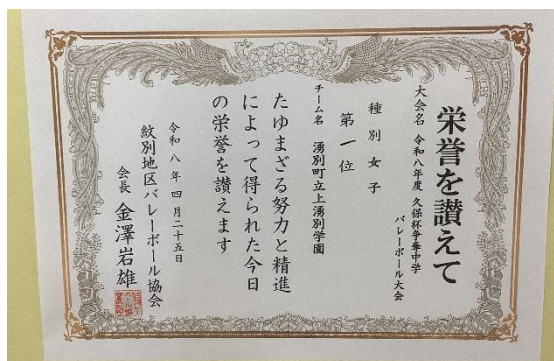 栄誉を讃えて
大会名 令和八年度 久保杯争奪中学
バレーボール大会
種別 女子
第一位
チーム名 湧別町立上湧別学園
たゆまざる努力と精進
によって得られた今日
の栄誉を讃えます
令和八年四月二十五日
紋別地区バレーボール協会
会長 金澤岩雄